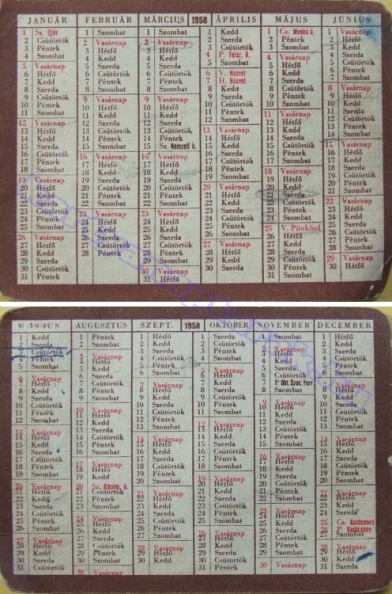 JANUÁR FEBRUÁR MÁRCIUS 1958 ÁPRILIS MÁJUS JÚNIUS
1 Sz. Újév 1 Szombat 1 Szombat 1 Kedd 1 Cs. Munka ü. 1 Vasárnap
2 Csütörtök 2 Vasárnap 2 Vasárnap 2 Szerda 2 Péntek 2 Hétfő
3 Péntek 3 Hétfő 3 Hétfő 3 Csütörtök 3 Szombat 3 Kedd
4 Szombat 4 Kedd 4 Kedd 4 P. Felsz. ü. 4 Vasárnap 4 Szerda
5 Vasárnap 5 Szerda 5 Szerda 5 Szombat 5 Hétfő 5 Csütörtök
6 Hétfő 6 Csütörtök 6 Csütörtök 6 V. Húsvét 6 Kedd 6 Péntek
7 Kedd 7 Péntek 7 Péntek 7 H. Húsvét 7 Szerda 7 Szombat
8 Szerda 8 Szombat 8 Szombat 8 Kedd 8 Csütörtök 8 Vasárnap
9 Csütörtök 9 Vasárnap 9 Vasárnap 9 Szerda 9 Péntek 9 Hétfő
10 Péntek 10 Hétfő 10 Hétfő 10 Csütörtök 10 Szombat 10 Kedd
11 Szombat 11 Kedd 11 Kedd 11 Péntek 11 Vasárnap 11 Szerda
12 Vasárnap 12 Szerda 12 Szerda 12 Szombat 12 Hétfő 12 Csütörtök
13 Hétfő 13 Csütörtök 13 Csütörtök 13 Vasárnap 13 Kedd 13 Péntek
14 Kedd 14 Péntek 14 Péntek 14 Hétfő 14 Szerda 14 Szombat
15 Szerda 15 Szombat 15 Sz. Nemzeti ü. 15 Kedd 15 Csütörtök 15 Vasárnap
16 Csütörtök 16 Vasárnap 16 Vasárnap 16 Szerda 16 Péntek 16 Hétfő
17 Péntek 17 Hétfő 17 Hétfő 17 Csütörtök 17 Szombat 17 Kedd
18 Szombat 18 Kedd 18 Kedd 18 Péntek 18 Vasárnap 18 Szerda
19 Vasárnap 19 Szerda 19 Szerda 19 Szombat 19 Hétfő 19 Csütörtök
20 Hétfő 20 Csütörtök 20 Csütörtök 20 Vasárnap 20 Kedd 20 Péntek
21 Kedd 21 Péntek 21 Péntek 21 Hétfő 21 Szerda 21 Szombat
22 Szerda 22 Szombat 22 Szombat 22 Kedd 22 Csütörtök 22 Vasárnap
23 Csütörtök 23 Vasárnap 23 Vasárnap 23 Szerda 23 Péntek 23 Hétfő
24 Péntek 24 Hétfő 24 Hétfő 24 Csütörtök 24 Szombat 24 Kedd
25 Szombat 25 Kedd 25 Kedd 25 Péntek 25 V. Pünkösd 25 Szerda
26 Vasárnap 26 Szerda 26 Szerda 26 Szombat 26 Hétfő 26 Csütörtök
27 Hétfő 27 Csütörtök 27 Csütörtök 27 Vasárnap 27 Kedd 27 Péntek
28 Kedd 28 Péntek 28 Péntek 28 Hétfő 28 Szerda 28 Szombat
29 Szerda 29 Szombat 29 Kedd 29 Csütörtök 29 Vasárnap
30 Csütörtök 30 Vasárnap 30 Szerda 30 Péntek 30 Hétfő
31 Péntek 31 Hétfő 31 Szombat
AUGUSZTUS SZEPT. 1958 OKTÓBER NOVEMBER DECEMBER
1 Kedd 1 Péntek 1 Hétfő 1 Szerda 1 Szombat 1 Hétfő
2 Szerda 2 Szombat 2 Kedd 2 Csütörtök 2 Vasárnap 2 Kedd
3 Csütörtök 3 Vasárnap 3 Szerda 3 Péntek 3 Hétfő 3 Szerda
4 Péntek 4 Hétfő 4 Csütörtök 4 Szombat 4 Kedd 4 Csütörtök
5 Szombat 5 Kedd 5 Péntek 5 Vasárnap 5 Szerda 5 Péntek
6 Vasárnap 6 Szerda 6 Szombat 6 Hétfő 6 Csütörtök 6 Szombat
7 Hétfő 7 Csütörtök 7 Vasárnap 7 Kedd 7 P Okt. Szoc. Forr. 7 Vasárnap
8 Kedd 8 Péntek 8 Hétfő 8 Szerda 8 Szombat 8 Hétfő
9 Szerda 9 Szombat 9 Kedd 9 Csütörtök 9 Vasárnap 9 Kedd
10 Csütörtök 10 Vasárnap 10 Szerda 10 Péntek 10 Hétfő 10 Szerda
11 Péntek 11 Hétfő 11 Csütörtök 11 Szombat 11 Kedd 11 Csütörtök
12 Szombat 12 Kedd 12 Péntek 12 Vasárnap 12 Szerda 12 Péntek
13 Vasárnap 13 Szerda 13 Szombat 13 Hétfő 13 Csütörtök 13 Szombat
14 Hétfő 14 Csütörtök 14 Vasárnap 14 Kedd 14 Péntek 14 Vasárnap
15 Kedd 15 Péntek 15 Hétfő 15 Szerda 15 Szombat 15 Hétfő
16 Szerda 16 Szombat 16 Kedd 16 Csütörtök 16 Vasárnap 16 Kedd
17 Csütörtök 17 Vasárnap 17 Szerda 17 Péntek 17 Hétfő 17 Szerda
18 Péntek 18 Hétfő 18 Csütörtök 18 Szombat 18 Kedd 18 Csütörtök
19 Szombat 19 Kedd 19 Péntek 19 Vasárnap 19 Szerda 19 Péntek
20 Vasárnap 20 Sz. 20 Szombat 20 Hétfő 20 Csütörtök 20 Szombat
21 Hétfő 21 Csütörtök 21 Vasárnap 21 Kedd 21 Péntek 21 Vasárnap
22 Kedd 22 Péntek 22 Hétfő 22 Szerda 22 Szombat 22 Hétfő
23 Szerda 23 Szombat 23 Kedd 23 Csütörtök 23 Vasárnap 23 Kedd
24 Csütörtök 24 Vasárnap 24 Szerda 24 Péntek 24 Hétfő 24 Szerda
25 Péntek 25 Hétfő 25 Csütörtök 25 Szombat 25 Kedd 25 Cs. Karácsony
26 Szombat 26 Kedd 26 Péntek 26 Vasárnap 26 Szerda 26 P. Karácsony
27 Vasárnap 27 Szerda 27 Szombat 27 Hétfő 27 Csütörtök 27 Szombat
28 Hétfő 28 Csütörtök 28 Vasárnap 28 Kedd 28 Péntek 28 Vasárnap
29 Kedd 29 Péntek 29 Hétfő 29 Szerda 29 Szombat 29 Hétfő
30 Szerda 30 Szombat 30 Kedd 30 Csütörtök 30 Vasárnap 30 Kedd
31 Csütörtök 31 Vasárnap 31 Péntek 31 Szerda